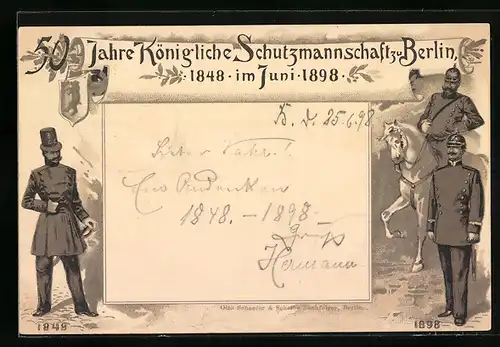 50 Jahre Königliche Schutzmannschaft zu Berlin,
1848 · im Juni · 1898 ·
B. d. 25.6.98
Lieber Vater!
Ein Andenken
1848. - 1898
Gruß
Hermann
Otto Schaefer & Scheibe Nachfolger, Berlin.
1848
1898